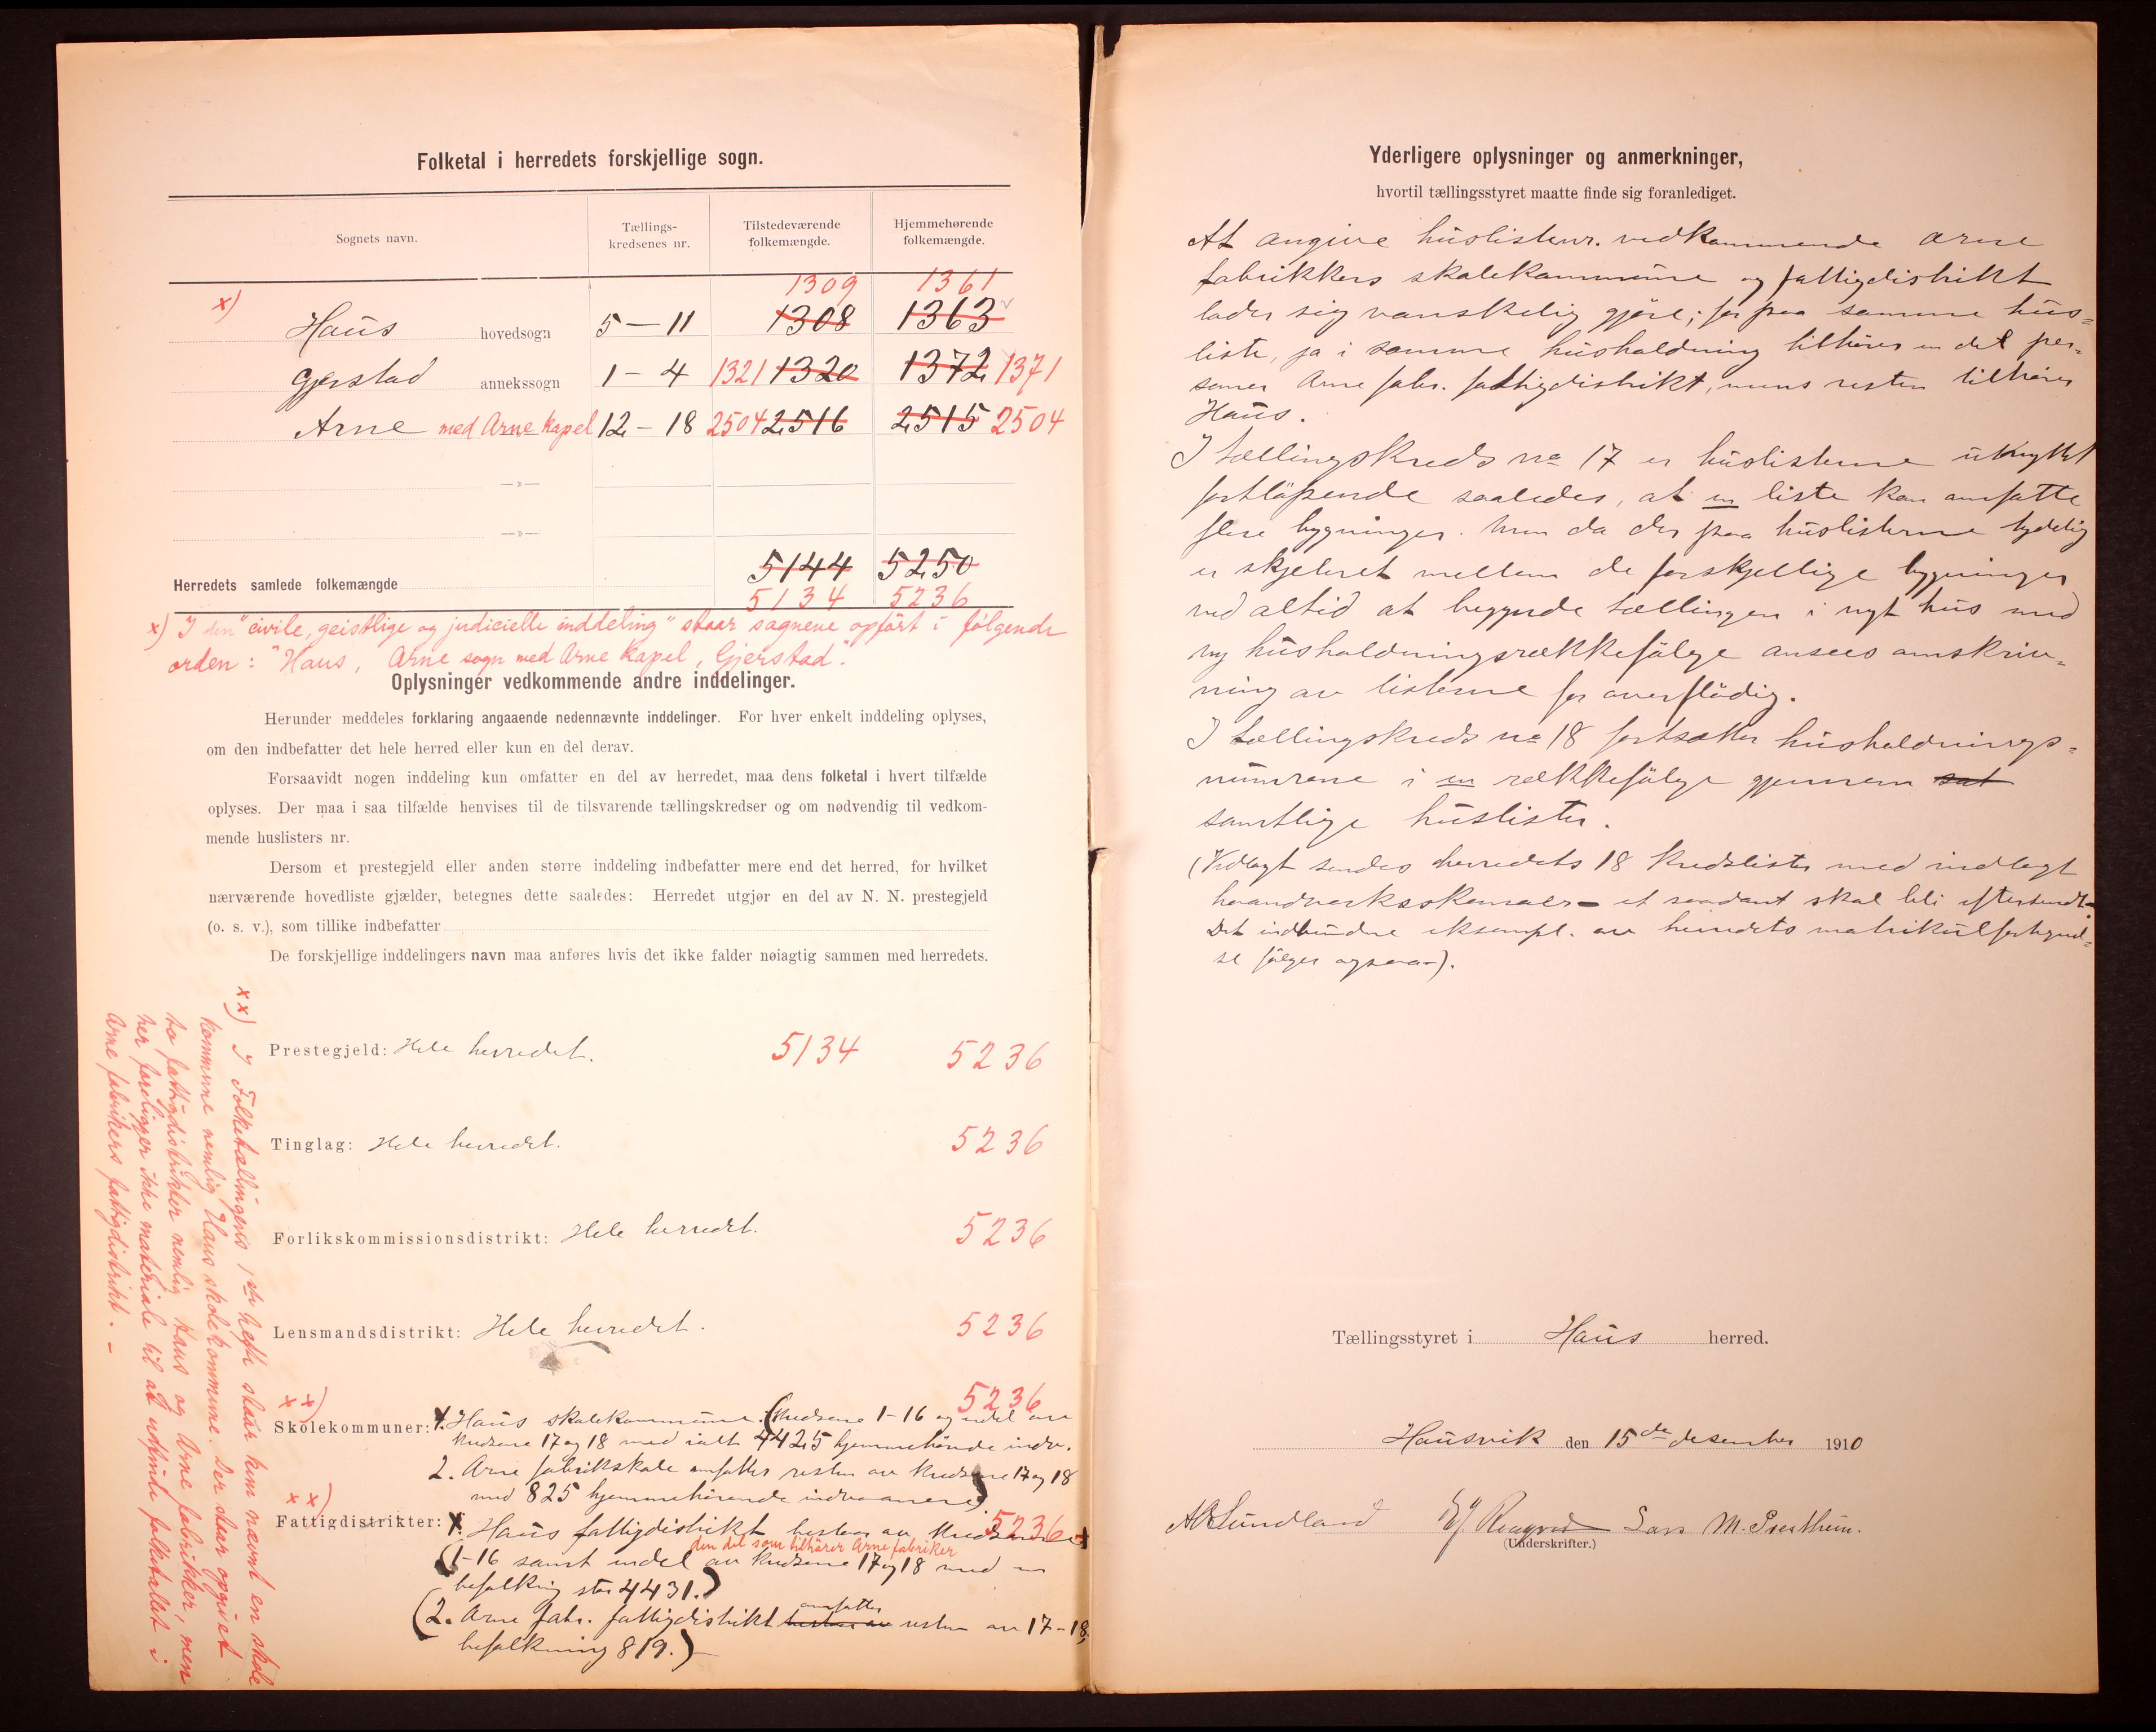 Folketal i herredets forskjellige sogn.
Sognets navn.
Tællings-
kredsenes nr.
Tilstedeværende
folkemængde.
Hjemmehørende
folkemængde.
1309 1361
x) Haus hovedsogn 5 – 11 1308 1363
Gjerstad annekssogn 1 – 4 1321 1320 1372 1371
Arne med Arne Kapel 12 – 18 2504 2516 2515 2504
—»—
—»—
5144 5250
Herredets samlede folkemængde
5134 5236
x) I den "civile, geistlige og judicielle inddeling" staar sognene opført i følgende
orden: "Haus, Arne sogn med Arne Kapel, Gjerstad".
Oplysninger vedkommende andre inddelinger.
Herunder meddeles forklaring angaaende nedennævnte inddelinger. For hver enkelt inddeling oplyses,
om den indbefatter det hele herred eller kun en del derav.
Forsaavidt nogen inddeling kun omfatter en del av herredet, maa dens folketal i hvert tilfælde
oplyses. Der maa i saa tilfælde henvises til de tilsvarende tællingskredser og om nødvendig til vedkom-
mende huslisters nr.
Dersom et prestegjeld eller anden større inddeling indbefatter mere end det herred, for hvilket
nærværende hovedliste gjælder, betegnes dette saaledes: Herredet utgjør en del av N. N. prestegjeld
(o. s. v.), som tillike indbefatter
De forskjellige inddelingers navn maa anføres hvis det ikke falder nøiagtig sammen med herredets.
Prestegjeld: Hele herredet. 5134 5236
Tinglag: Hele herredet. 5236
Forlikskommissionsdistrikt: Hele herredet. 5236
Lensmandsdistrikt: Hele herredet. 5236
xx) 5236
Skolekommuner: 1. Haus skolekommune. (Kredsene 1-16 og endel av
kredsene 17 og 18 med ialt 4425 hjemmehørende indv.
2. Arne fabrikskole omfatter resten av kredsene 17 og 18
med 825 hjemmehørende indvaanere).
xx)
Fattigdistrikter: 1. Haus fattigdistrikt bestaar av kredsene 5236
den del som tilhører Arne fabriker
(1-16 samt endel av kredsene 17 og 18 med en
befolkning stor 4431.)
omfatter
(2. Arne fabr. fattigdistrikt bestaar av resten av 17-18,
befolkning 819.)
xx) I Folketællingens 1ste hefte staar kun nævnt en skole
kommune nemlig Haus skolekommune. Der staar opgivet
to fattigdistrikter nemlig Haus og Arne fabrikker, men
her foreligger ikke materiale til at utfinde folketallet i
Arne fabrikers fattigdistrikt. –
Yderligere oplysninger og anmerkninger,
hvortil tællingsstyret maatte finde sig foranlediget.
At angive huslistenr. vedkommende Arne
fabrikkers skolekommune og fattigdistrikt
lader sig vanskelig gjøre; for paa samme hus-
liste, ja i samme husholdning tilhører en del per-
soner Arne fabr. fattigdistrikt, mens resten tilhører
Haus.
I tællingskreds no 17 er huslisterne utnyttet
fortløpende saaledes, at en liste kan omfatte
flere bygninger. Men da der paa huslisterne tydelig
er skjelnet mellem de forskjellige bygninger
ved altid at begynde tællingen i nyt hus med
ny husholdningsrækkefølge ansees omskriv-
ning av listerne for overflødig.
I tællingskreds no 18 fortsætter husholdnings-
numrene i en rækkefølge gjennem sat
samtlige huslister.
(Vedlagt sendes herredets 18 kredslister med indlagt
haandverksskemaer – et saadant skal bli eftersendt –
Det indbundne eksempl. av herredets matrikulfortegnel-
se følger ogsaa –).
Tællingsstyret i Haus herred.
Hausvik den 15de desember 1910
Lars M.
(Underskrifter.)